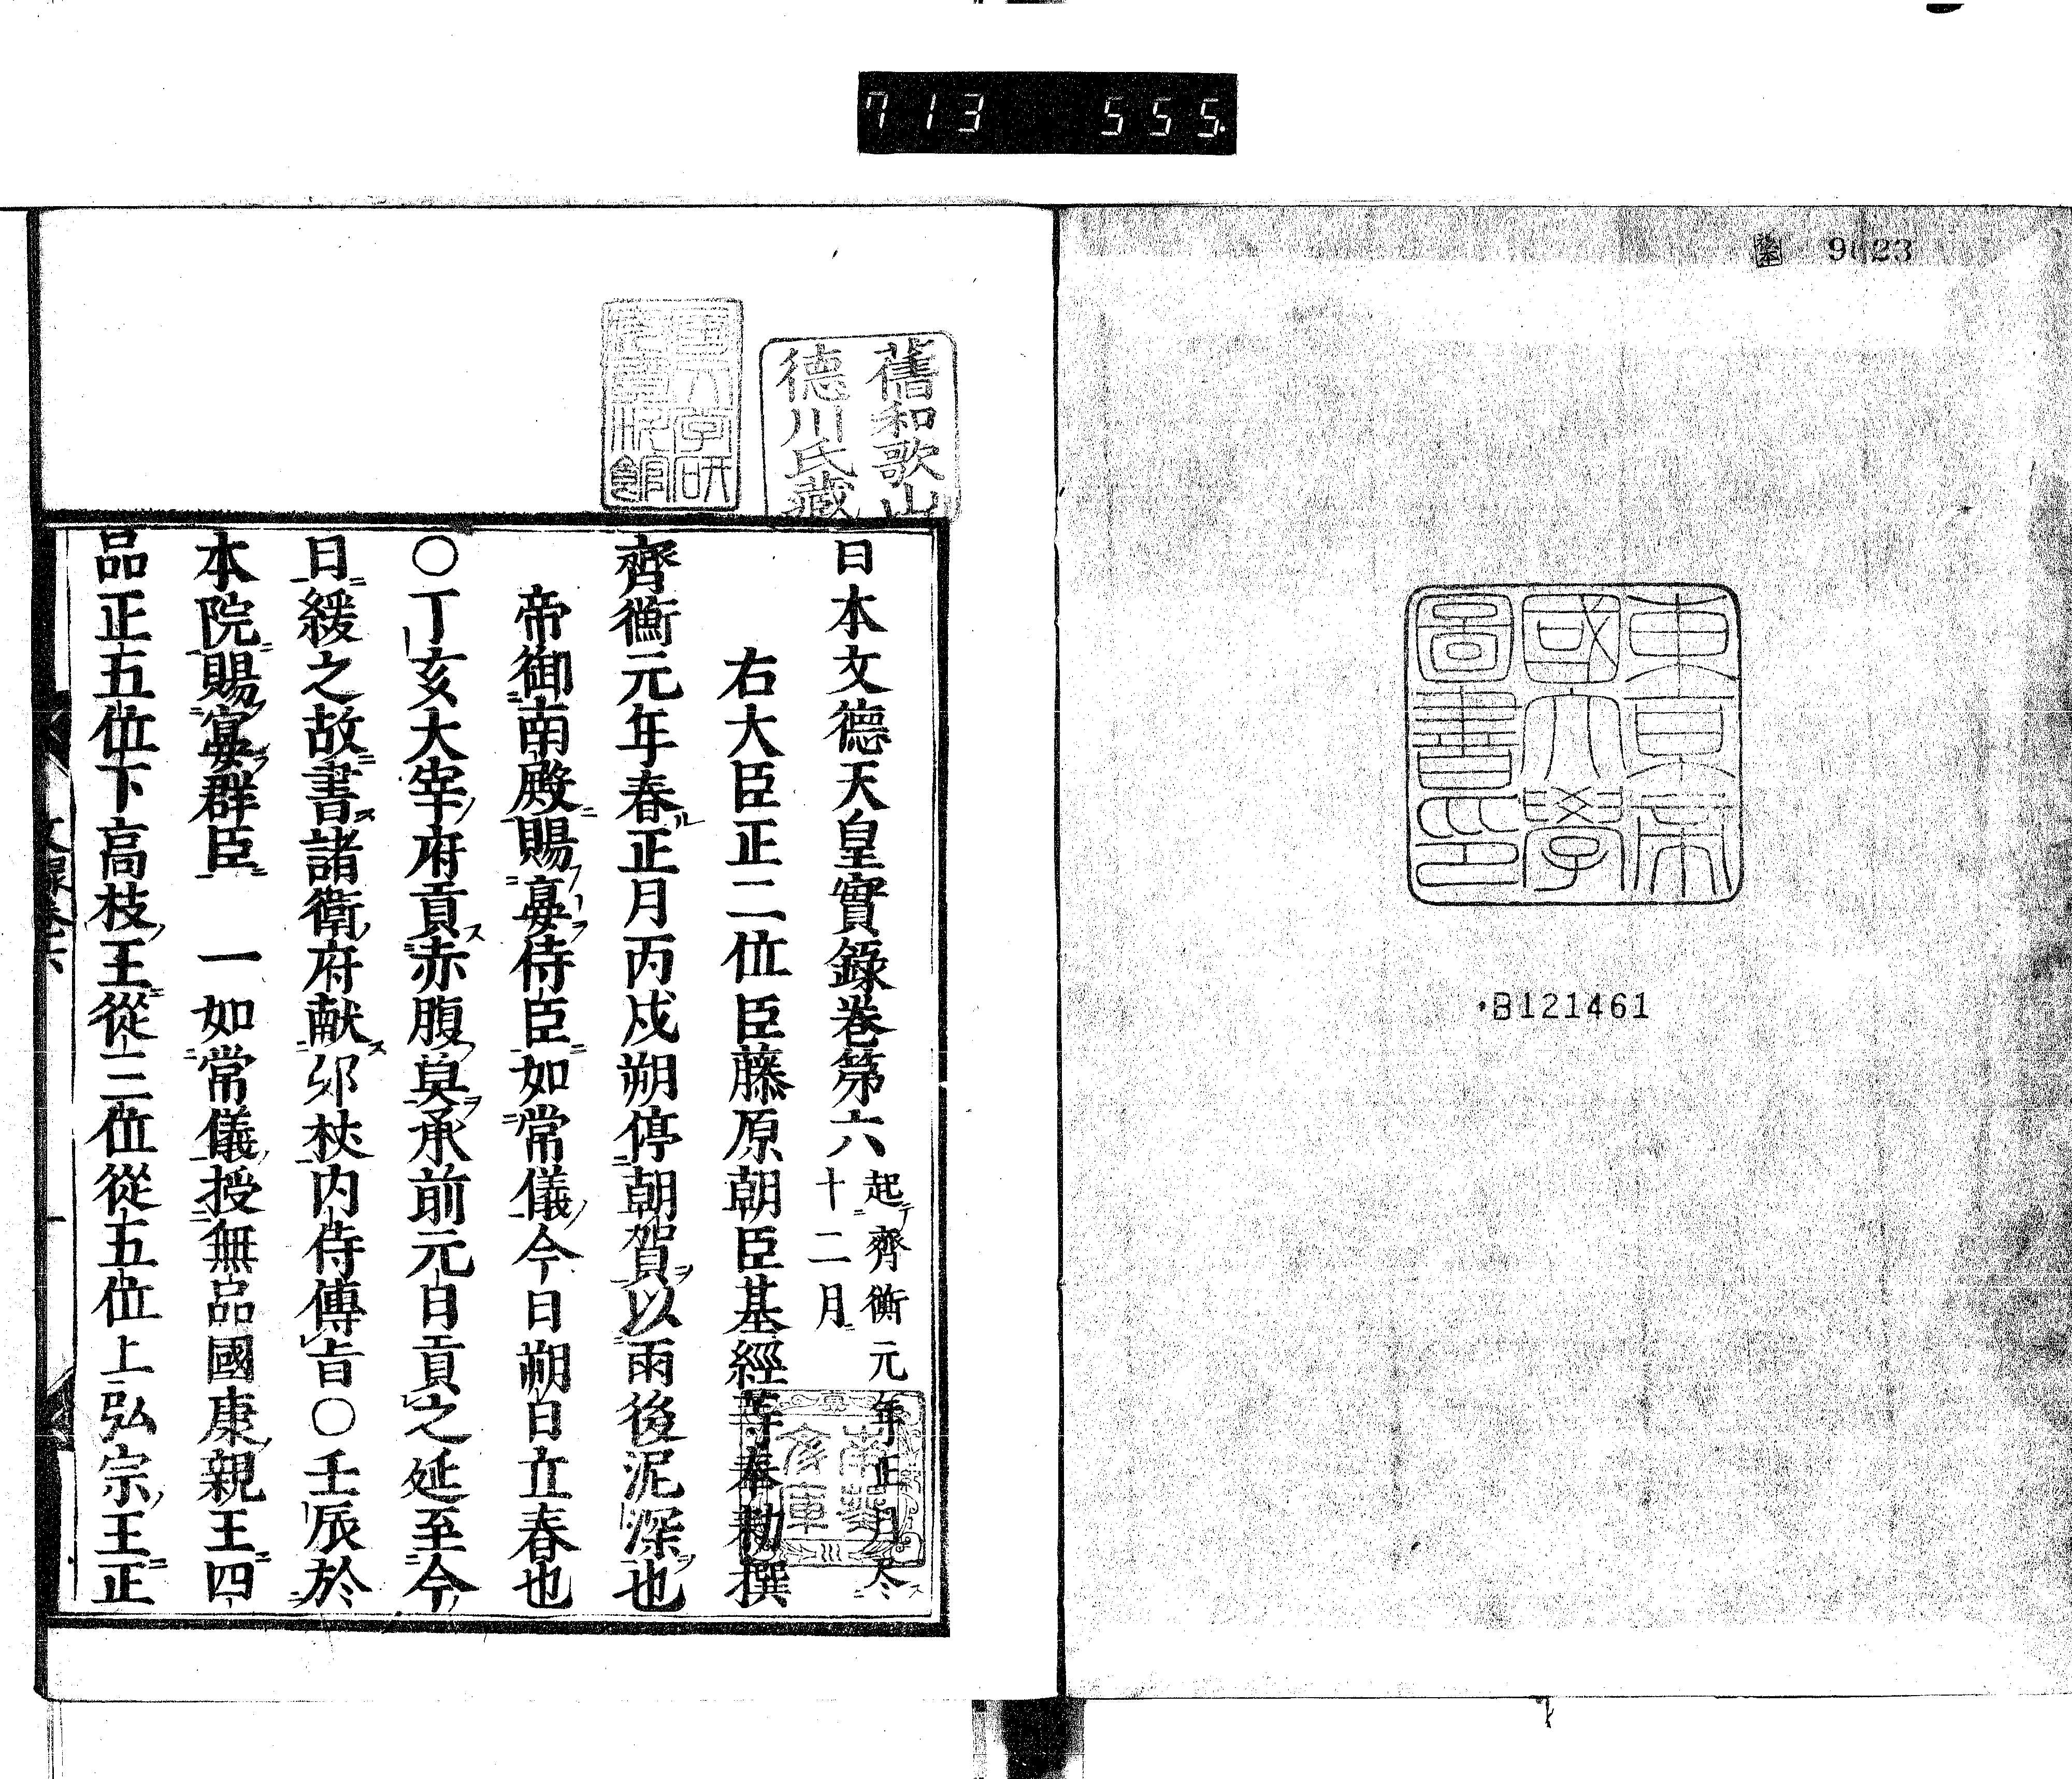 713 555.
9023
東京帝
國大學
圖書印
*B121461
舊和歌山
德川氏藏
南葵
文庫
日本文德天皇實錄卷第六 起齊衡元年正月尽
十二月
右大臣正二位臣藤原朝臣基經等奉勅撰
齊衡元年春正月丙戌朔停朝賀以雨後泥深也
帝御南殿賜宴侍臣如常儀今日朔日立春也
〇丁亥大宰府貢赤腹魚承前元日貢之延至今
日緩之故書諸衛府献卯杖内侍傳旨〇壬辰於
本院賜宴群臣 一如常儀授無品國康親王四
品正五位下高枝王從三位從五位上弘宗王正